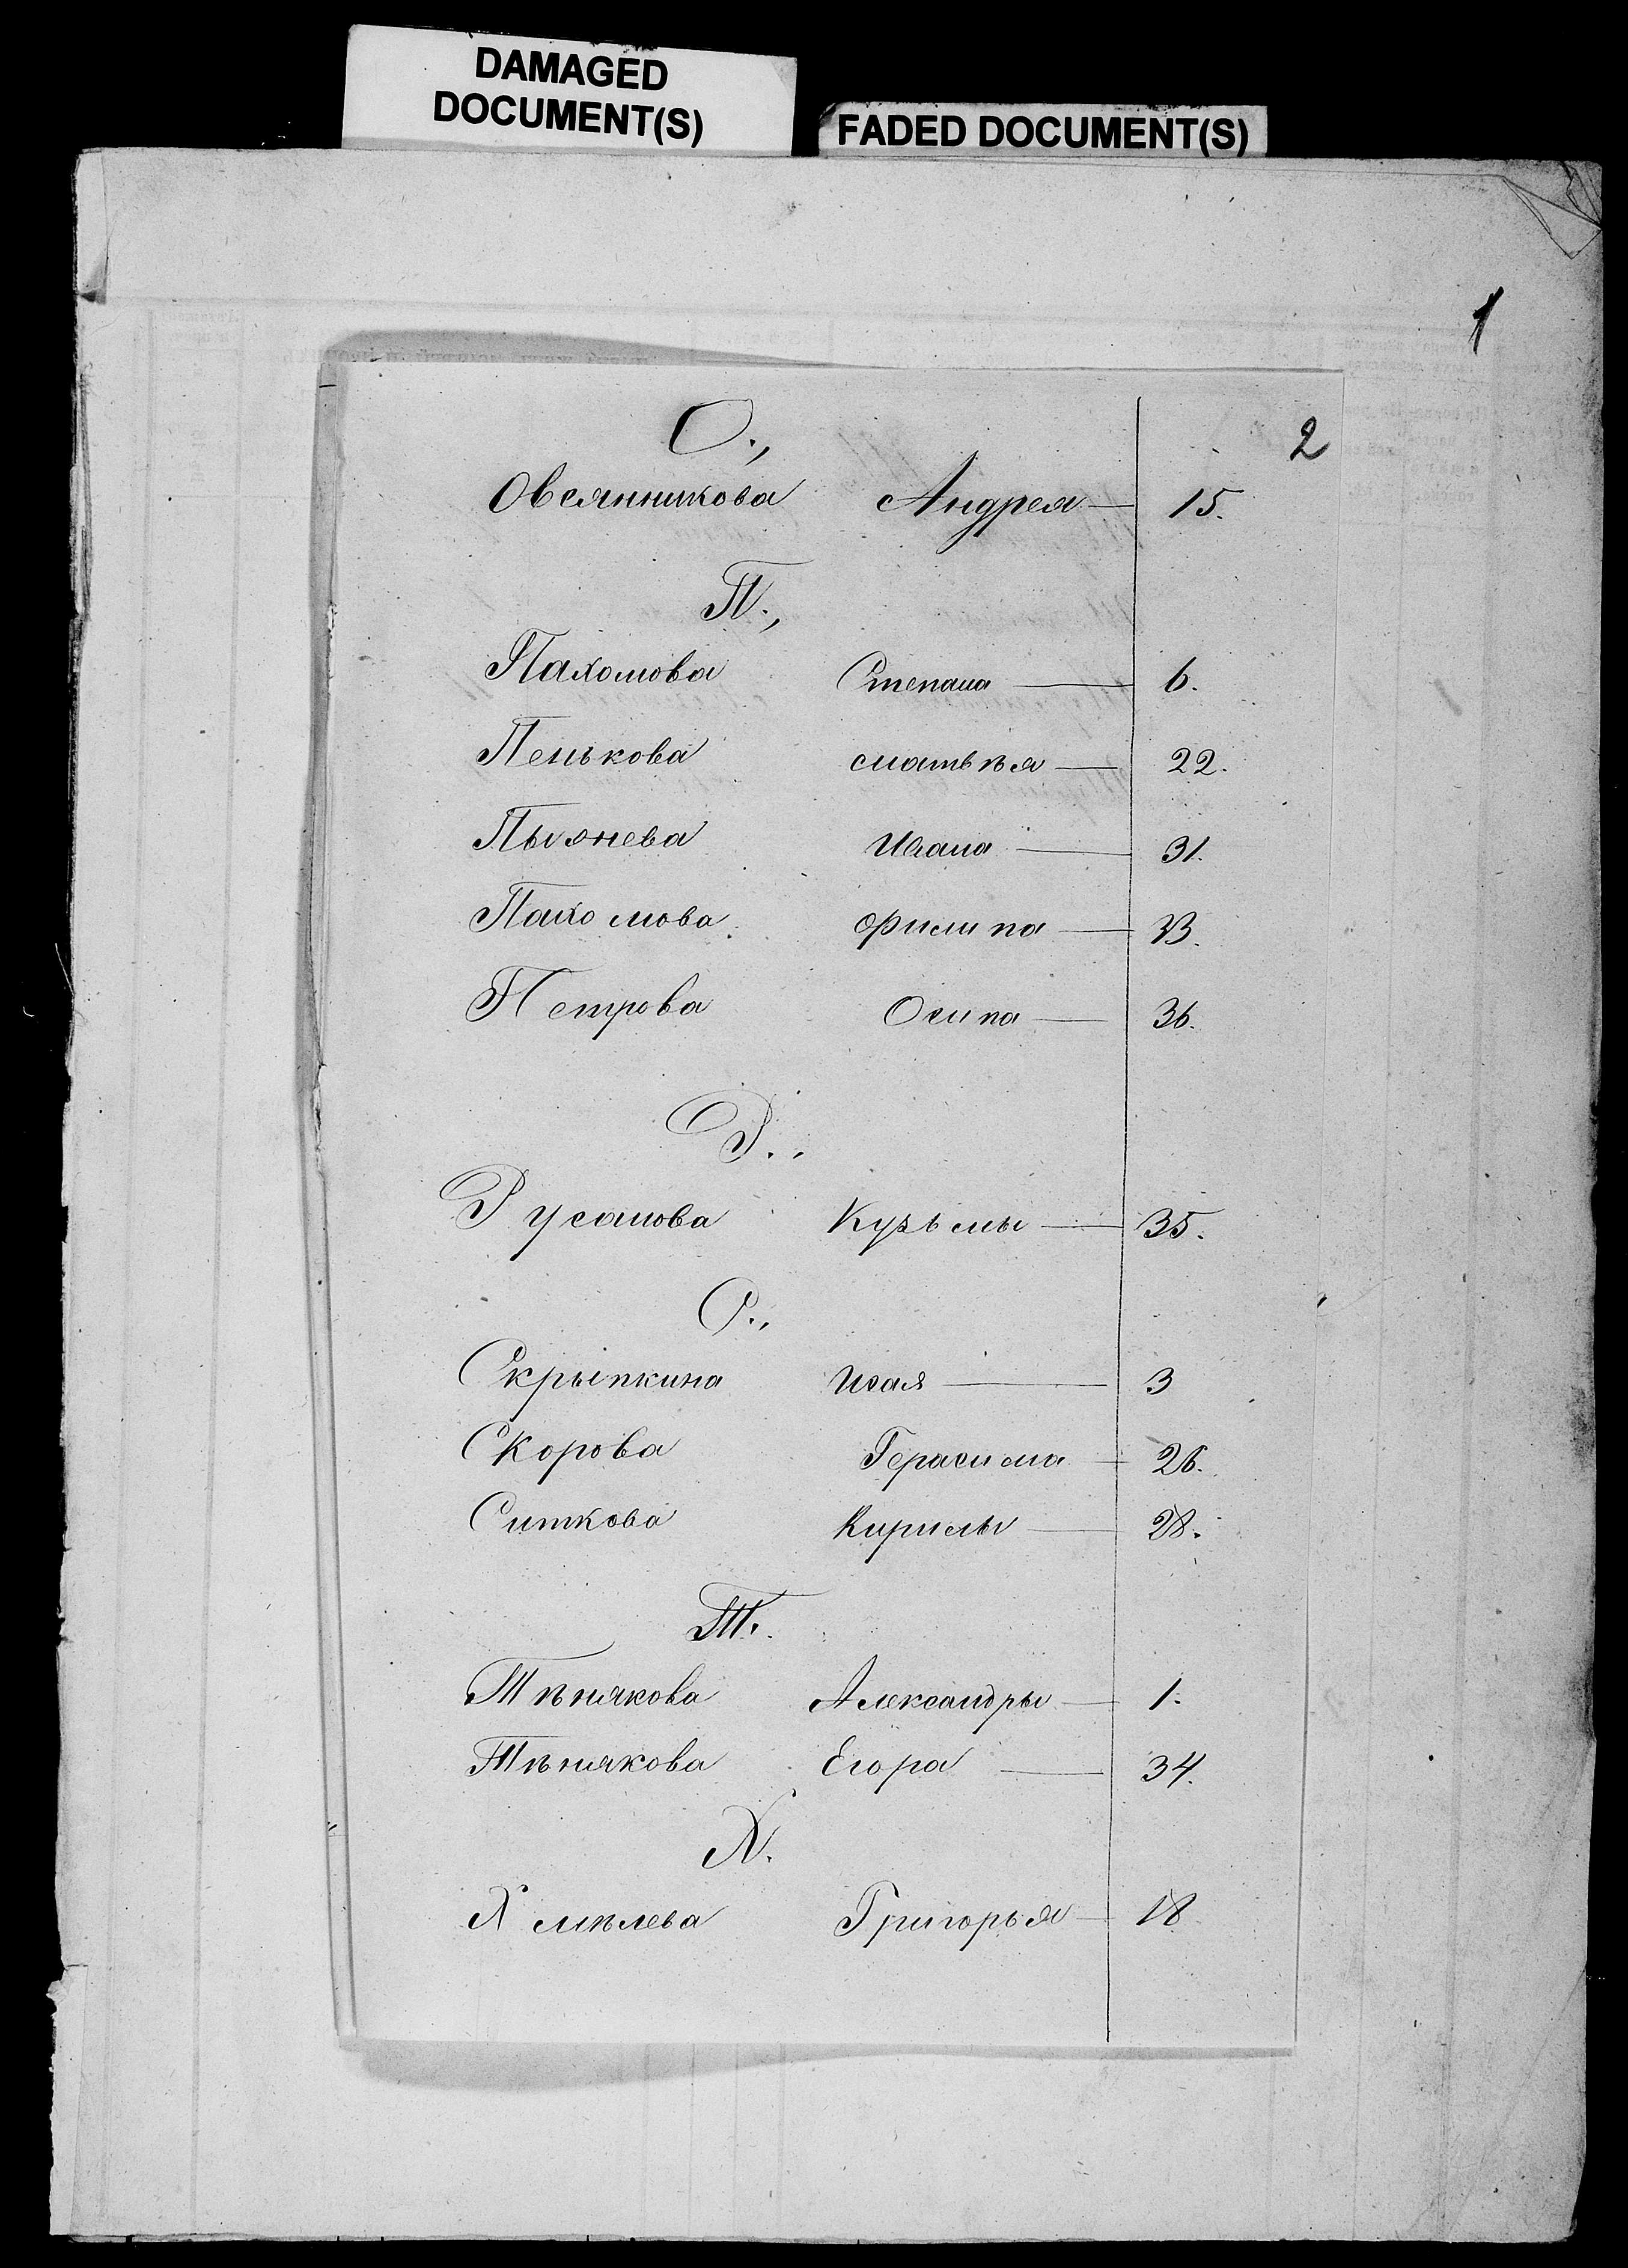 DAMAGED
DOCUMENT(S)
FADED DOCUMENT(S)
1
2
О.,
Овсянникова Андрея — 15.
П.,
Пахомова Степана — 6.
Пенькова Матвѣя — 22.
Пьянева Ивана — 31.
Пахомова Филипа — 33.
Петрова Осипа — 36.
Р.,
Русанова Кузьмы — 35.
С.,
Скрыпкина Исая — 3
Скорова Герасима — 26.
Ситкова Кирилы — 28.
Т.
Тѣнякова Александры — 1.
Тѣнякова Егора — 34.
Х.
Хмѣлева Григорья — 18